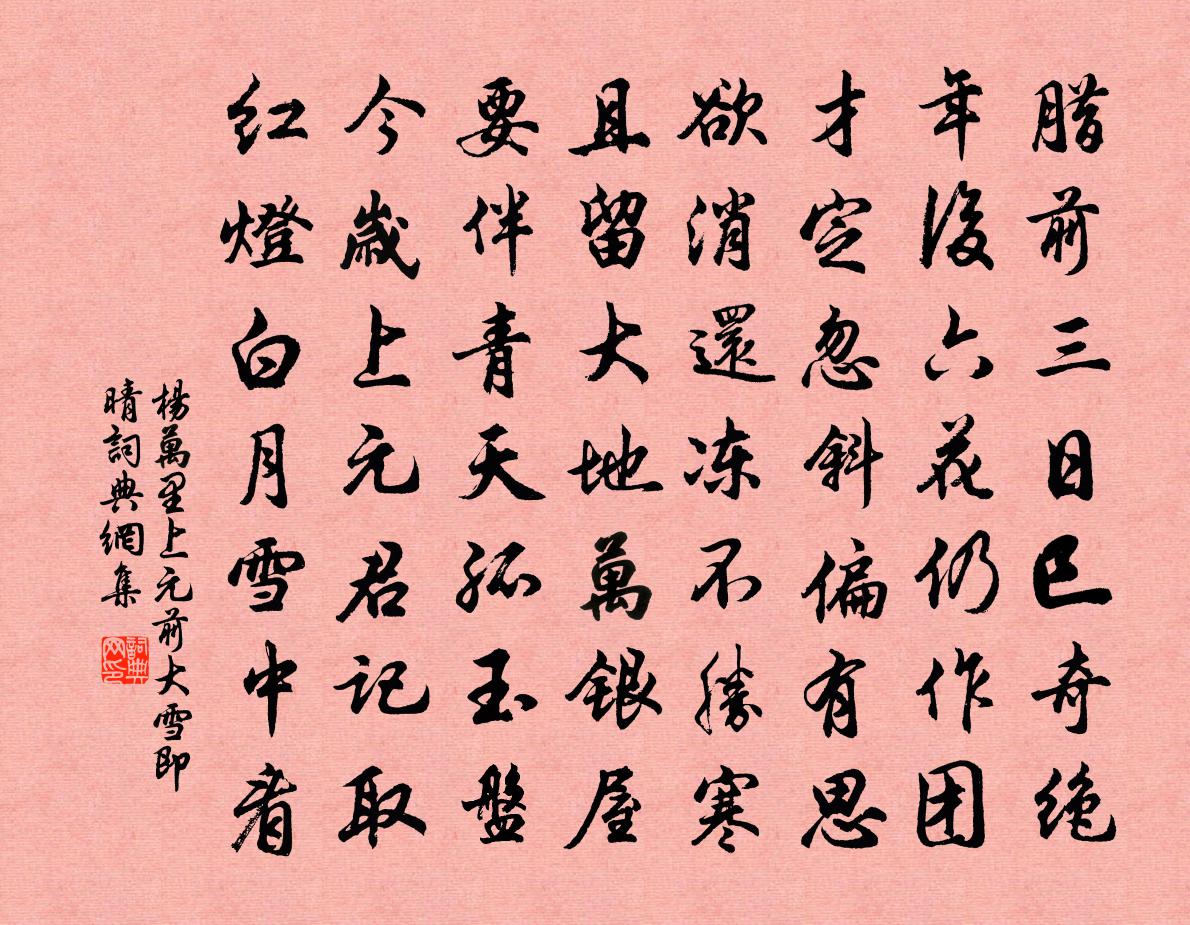 腊前三日已奇绝
年後六花仍作团
才定忽斜偏有思
欲消還冻不勝寒
且留大地萬银屋
要伴青天孤玉盤
今歲上元君记取
红燈白月雪中看
楊萬里上元前大雪即
晴詞典網集
詞典
网印